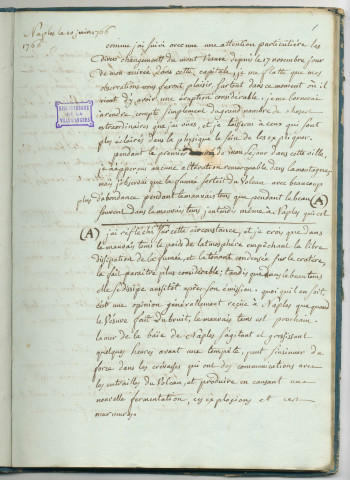 Naples le 10 juin 1766
1766
1
comme j'ai suivi avec une attention particulière les
divers changements du mont Vesuve depuis le 17 novembre jour
de mon arrivée dans cette capitale, je me flatte que mes
observations vous feront plaisir, surtout dans ce moment où il
vient d'y avoir une éruption considérable. je me bornerai
à rendre compte simplement du grand nombre de choses
extraordinaires que j'ai vues, et je laisserai à ceux qui sont
plus éclairés dans la physique le soin de les expliquer.
pendant la première de mon séjour dans cette ville,
je n'apperçus aucune altération remarquable dans la montagne,
mais j'observai que la fumée sortait du Volcan avec beaucoup
plus d'abondance pendant le mauvais tems que pendant le beau (A)
souvent dans le mauvais tems j'entendis même à Naples qui est
(A) j'ai réfléchi sur cette circonstance, et je crois que dans
le mauvais tems le poids de l'atmosphère empêchant la libre
dissipation de la fumée, et la tenant condensée sur le cratère,
la fait paraître plus considérable; tandis que dans le beau tems
elle se dissipe aussitôt après son émission. quoi qu'il en soit,
c'est une opinion généralement reçue à Naples que quand
le Vesuve fait du bruit, le mauvais tems est prochain.
la mer de la baie de Naples s'agitant et grossissant
quelques heures avant une tempête, peut s'insinuer de
force dans les crevasses qui ont des communications avec
les entrailles du Volcan, et produire en causant une
nouvelle fermentation, ces explosions et ces
murmures.